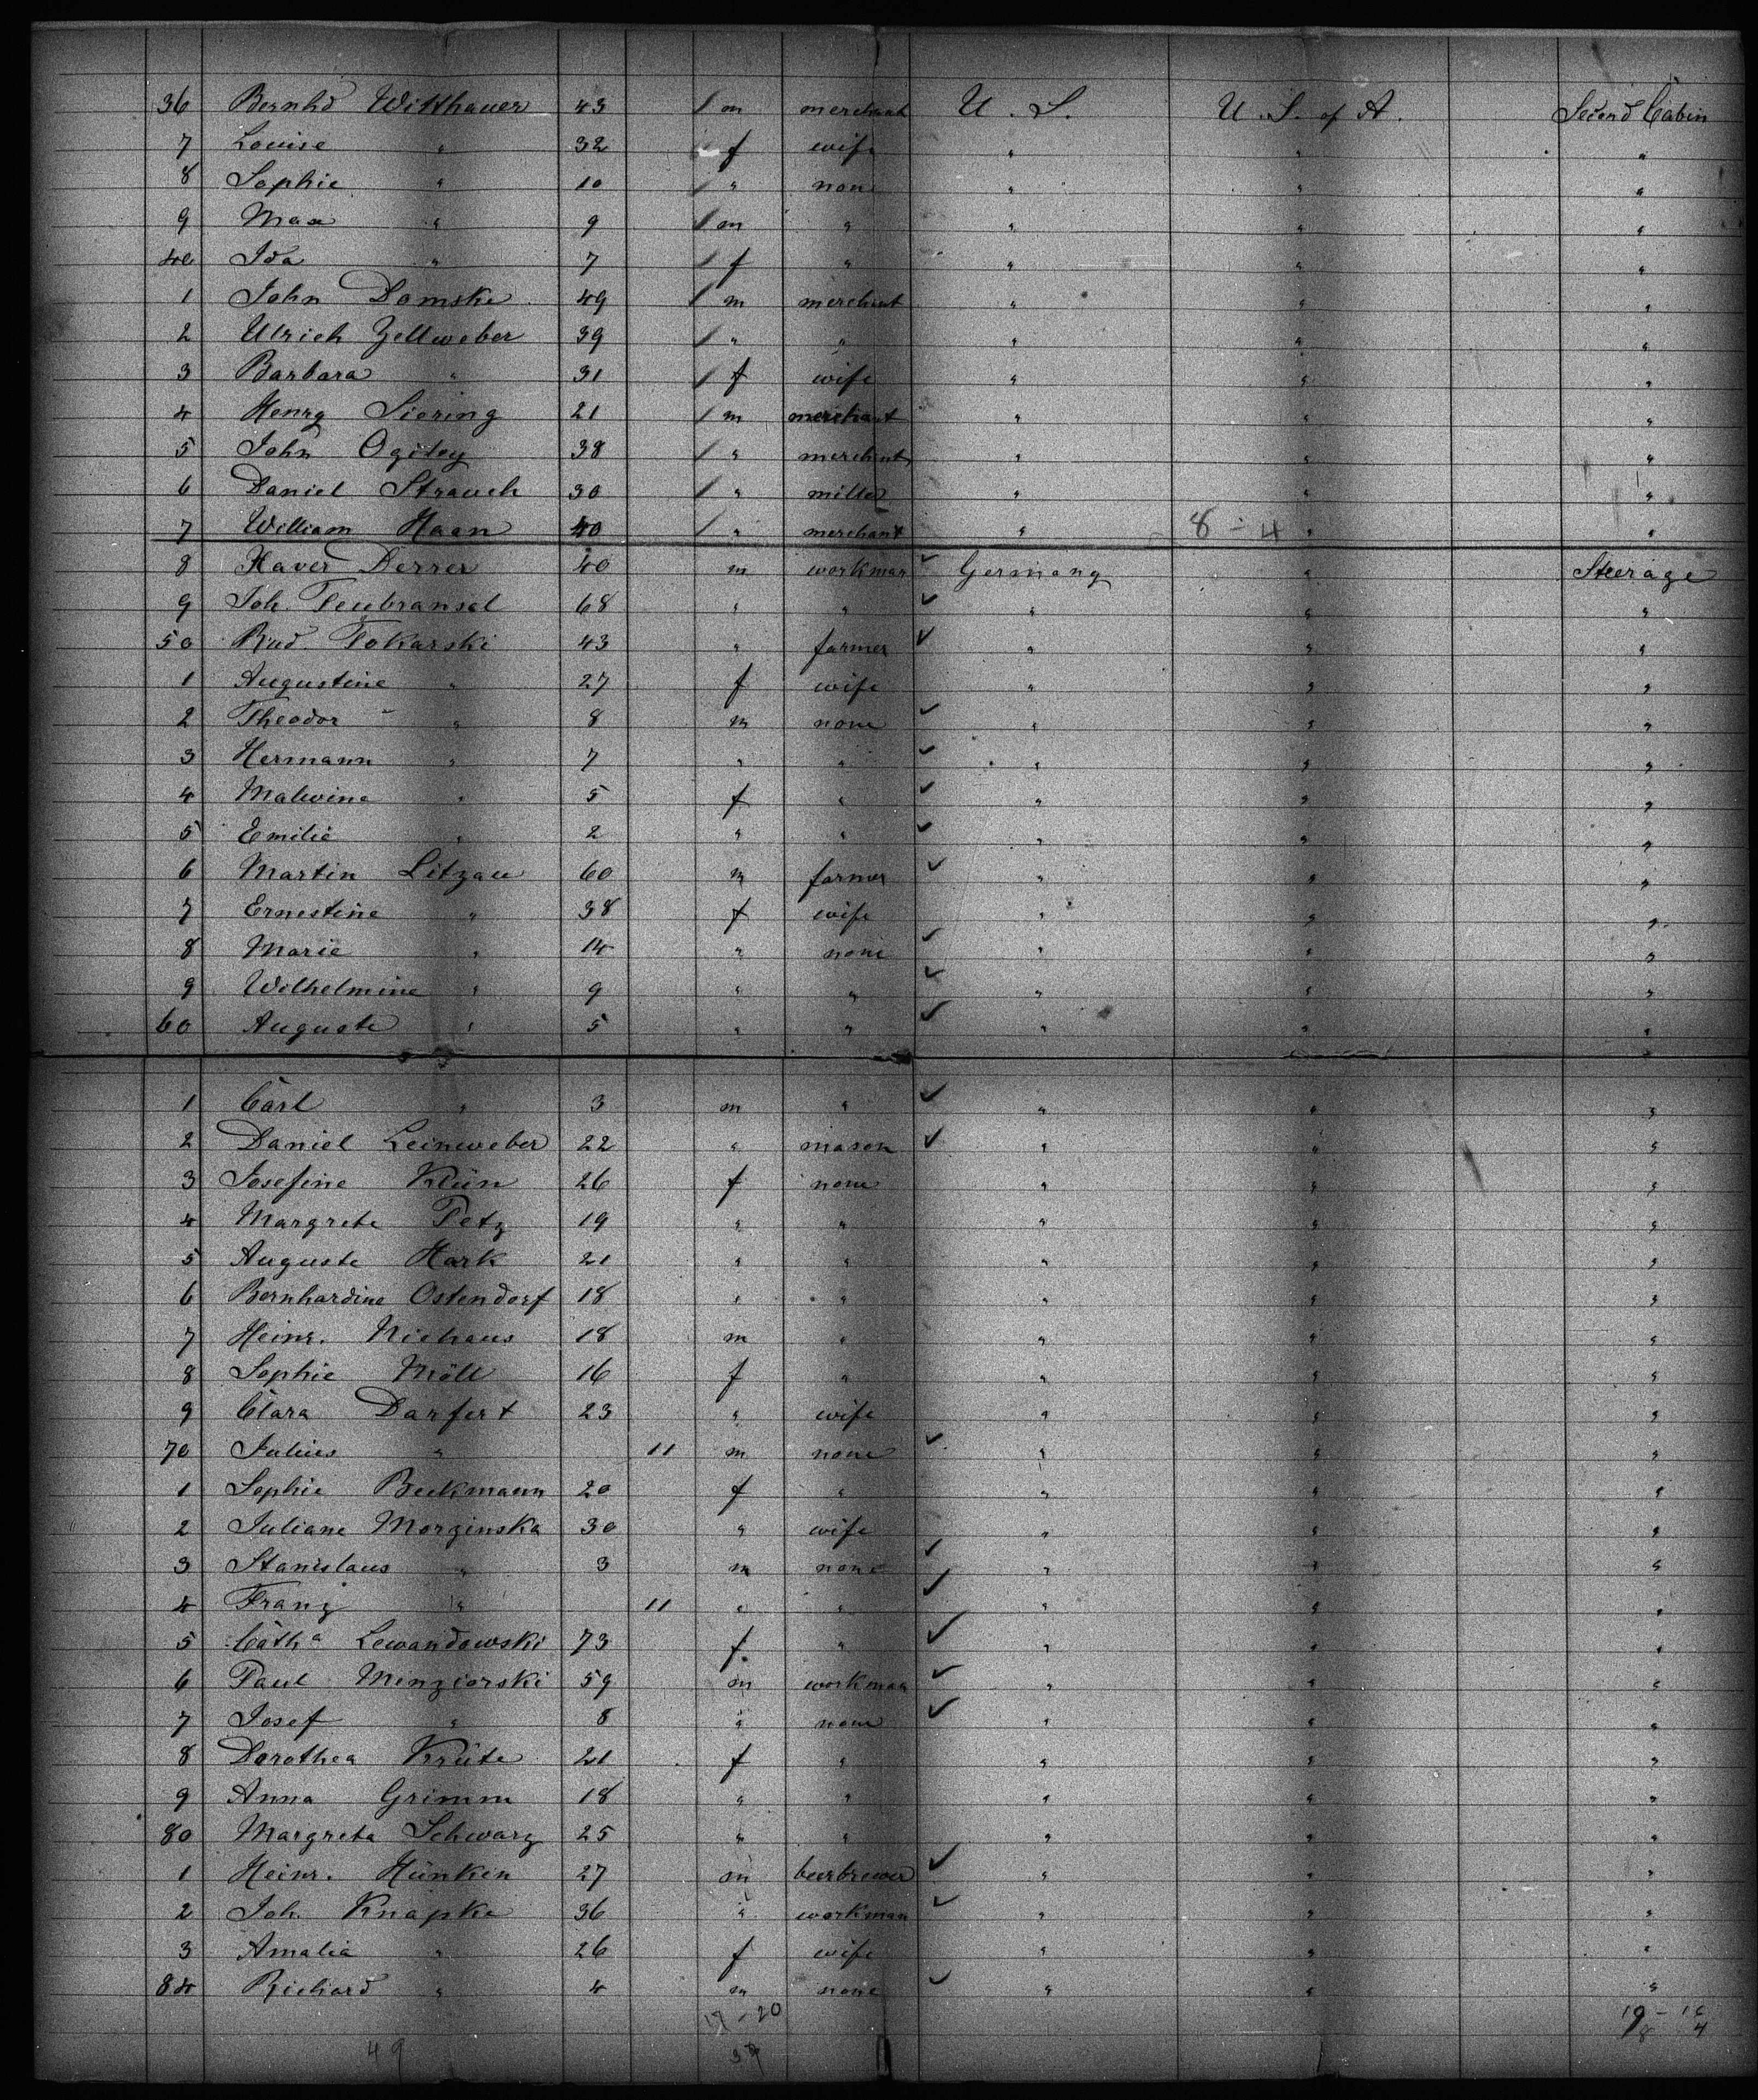 36 Bernhd Witthauer 43 / m merchant U. S. U. S. of A. Second Cabin
7 Louise " 32 / f wife " " "
8 Sophie " 10 / " none " " "
9 Max " 9 / m " " " "
40 Ida " 7 / f " " " "
1 John Domske 49 / m merchant " " "
2 Ulrich Zellweber 39 / " " " " "
3 Barbara " 31 / f wife " " "
4 Henry Siering 21 / m merchant " " "
5 John 38 / " merchant " " "
6 Daniel Strauch 30 / " miller " " "
7 William Haan 40 / " merchant " 8 - 4 " "
8 Xaver Derrer 40 m workman ✓ Germany " Steerage
9 Joh. 68 " " ✓ " " "
50 Rud. Tokarski 43 " farmer ✓ " " "
1 Augustine " 27 f wife " " "
2 Theodor " 8 m none ✓ " " "
3 Hermann " 7 " " ✓ " " "
4 Malwine " 5 f " ✓ " " "
5 Emilie " 2 " " ✓ " " "
6 Martin Litzau 60 m farmer ✓ " " "
7 Ernestine " 38 f wife " " "
8 Marie " 14 " none ✓ " " "
9 Wilhelmine " 9 " " ✓ " " "
60 Auguste " 5 " " ✓ " " "
1 Carl " 3 m " ✓ " " "
2 Daniel Leinweber 22 " mason ✓ " " "
3 Josefine Klün 26 f none " " "
4 Margrete Petz 19 " " " " "
5 Auguste Hark 21 " " " " "
6 Bernhardine Ostendorf 18 " " " " "
7 Heinr. Niehaus 18 m " " " "
8 Sophie Möll 16 f " " " "
9 Clara Darfert 23 " wife " " "
70 Julius " 11 m none ✓ " " "
1 Sophie Beckmann 20 f " " " "
2 Juliane Morzinska 30 " wife " " "
3 Stanislaus " 3 m none ✓ " " "
4 Franz " 11 " " ✓ " " "
5 Cath^a Lewandowski 73 f " ✓ " " "
6 Paul Menziorski 59 m workman ✓ " " "
7 Josef " 8 " none ✓ " " "
8 Dorothea Krüte 21 f " " " "
9 Anna Grimm 18 " " " " "
80 Margreta Schwarz 25 " " " " "
1 Heinr. Hünken 27 m beerbrewer ✓ " " "
2 Joh. Knapke 36 " workman ✓ " " "
3 Amalia " 26 f wife " " "
84 Richard " 4 m none ✓ " " "
49